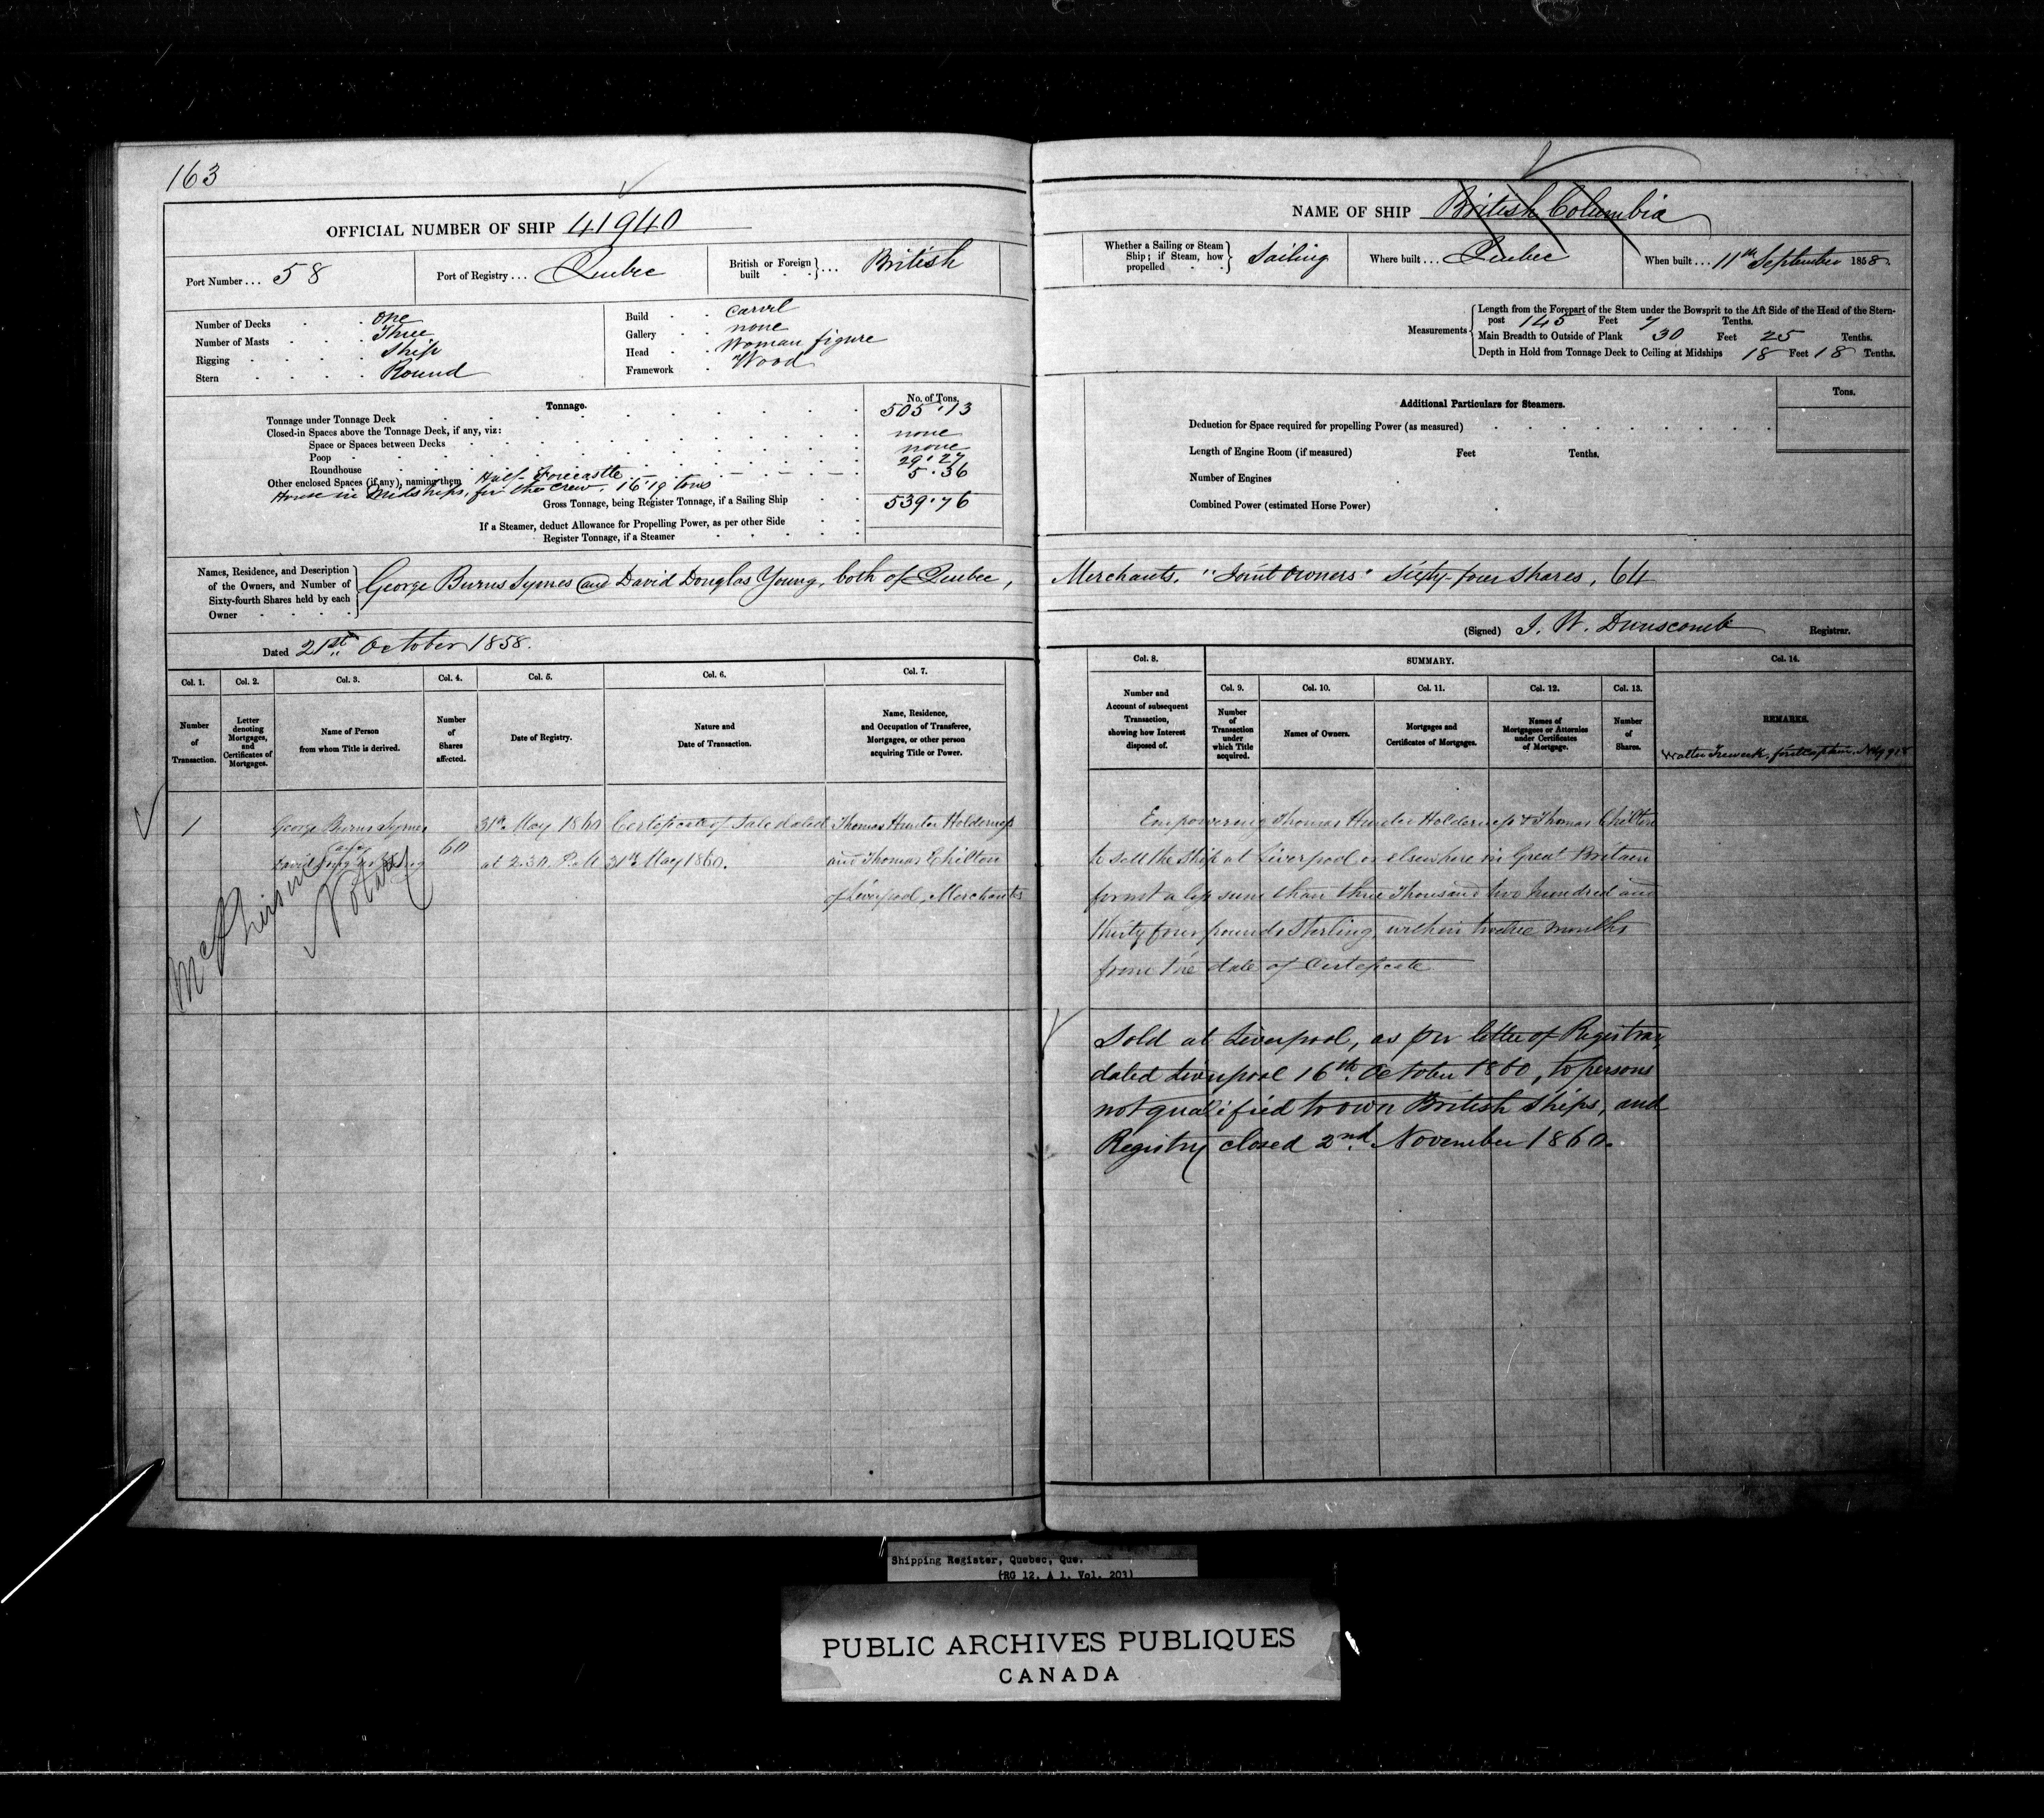 163
OFFICIAL NUMBER OF SHIP 41940
Port Number ... 58
Port of Registry ... Quebec
British or Foreign built ... British
Number of Decks One
Number of Masts Three
Rigging Ship
Stern Round
Build Carvel
Gallery none
Head Woman figure
Framework Wood
Tonnage.
No. of Tons.
Tonnage under Tonnage Deck 505.13
Closed-in Spaces above the Tonnage Deck, if any, viz:
Space or Spaces between Decks none
Poop none
Roundhouse 29.27
Other enclosed Spaces (if any), naming them Half-Forecastle 5.36
House in Midships, for the crew, 16.19 tons
Gross Tonnage, being Register Tonnage, if a Sailing Ship 539.76
If a Steamer, deduct Allowance for Propelling Power, as per other Side
Register Tonnage, if a Steamer
Names, Residence, and Description
of the Owners, and Number of
Sixty-fourth Shares held by each
Owner
George Burns Symes and David Douglas Young, both of Quebec,
Dated 21st October 1858.
Col. 1. Col. 2. Col. 3. Col. 4. Col. 5. Col. 6. Col. 7.
Number of Transaction.
Letter denoting Mortgages, and Certificates of Mortgages.
Name of Person from whom Title is derived.
Number of Shares affected.
Date of Registry.
Nature and Date of Transaction.
Name, Residence, and Occupation of Transferee, Mortgages, or other person acquiring Title or Power.
1 George Burns Symes 31st May 1860 Certificate of Sale dated Thomas Hunter Holderness
and
David Douglas Young 60 at 2.30 P.M 31st May 1860. and Thomas Chilton
of Liverpool, Merchants
Notary
NAME OF SHIP British Columbia
Whether a Sailing or Steam Ship; if Steam, how propelled Sailing
Where built ... Quebec
When built ... 11th September 1858.
Measurements
Length from the Forepart of the Stem under the Bowsprit to the Aft Side of the Head of the Stern-
post 145 Feet 7 Tenths.
Main Breadth to Outside of Plank 30 Feet 25 Tenths.
Depth in Hold from Tonnage Deck to Ceiling at Midships 18 Feet 18 Tenths.
Additional Particulars for Steamers.
Tons.
Deduction for Space required for propelling Power (as measured)
Length of Engine Room (if measured) Feet Tenths.
Number of Engines
Combined Power (estimated Horse Power)
Merchants. "Joint Owners" Sixty-four shares, 64
(Signed) J. W. Dunscomb Registrar.
Col. 8. SUMMARY. Col. 14.
Col. 9. Col. 10. Col. 11. Col. 12. Col. 13.
Number and Account of subsequent Transaction, showing how Interest disposed of.
Number of Transaction under which Title acquired.
Names of Owners.
Mortgages and Certificates of Mortgages.
Names of Mortgagees or Attornies under Certificates of Mortgage.
Number of Shares.
REMARKS.
Empowering Thomas Hunter Holderness & Thomas Chilton
to sell the Ship at Liverpool or elsewhere in Great Britain
for not a less sum than three Thousand two hundred and
thirty four pounds Sterling, within twelve months
from the date of Certificate
Sold at Liverpool, as per letter of Registrar,
dated Liverpool 16th October 1860, to persons
not qualified to own British Ships, and
Registry closed 2nd November 1860.
Shipping Register, Quebec, Que.
(RG 12, A 1, Vol. 203)
PUBLIC ARCHIVES PUBLIQUES
CANADA